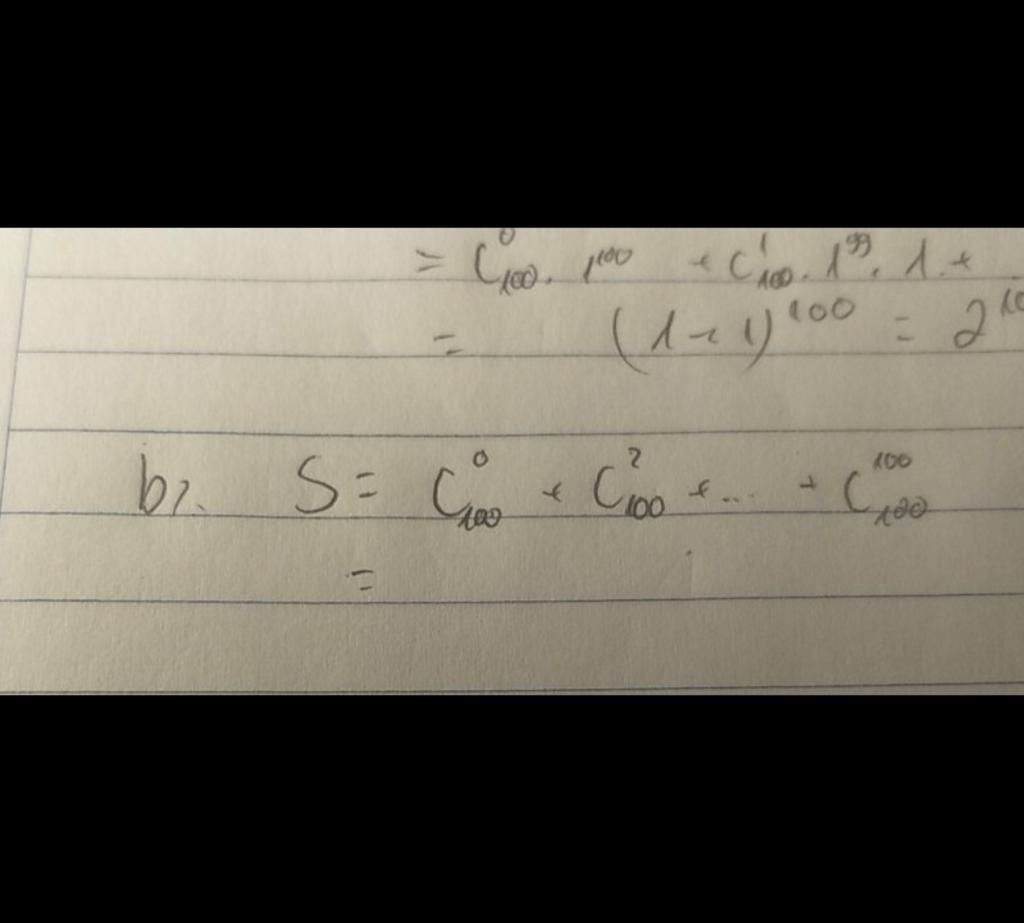 = C⁰₁₀₀ . 1¹⁰⁰ + C¹₁₀₀ . 1⁹⁹ . 1 +
= (1+1)¹⁰⁰ = 2¹⁰
b). S = C⁰₁₀₀ + C²₁₀₀ + ... + C¹⁰⁰₁₀₀
=